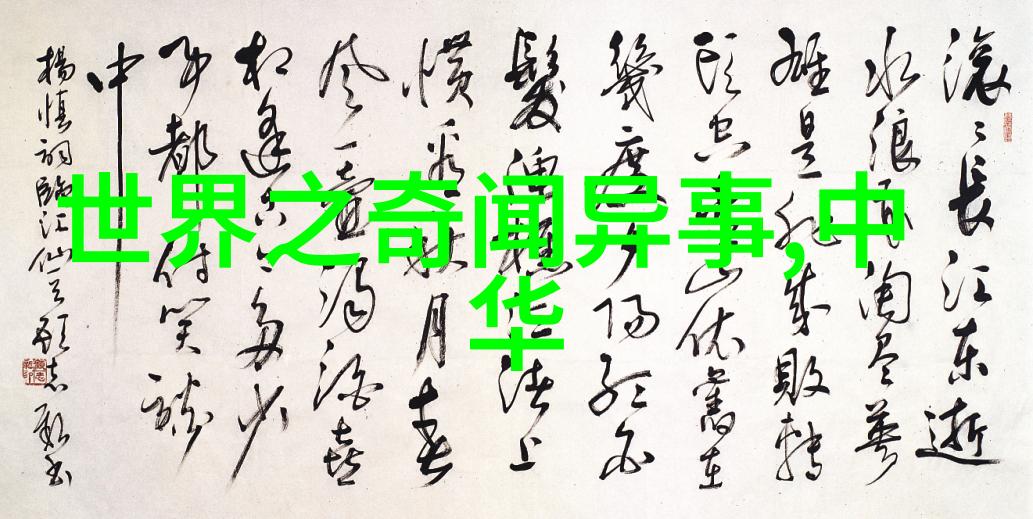 世界之奇闻异事,中
华
滚〻長江东逝
水浪花淘尽英
雄是非成败轉
頭空青山依舊在
幾度夕阳红白
髮渔樵江渚上
惯看秋月春
风一壶浊酒喜
相逢古今多少
事都付笑谈
中
楊慎詞臨江仙